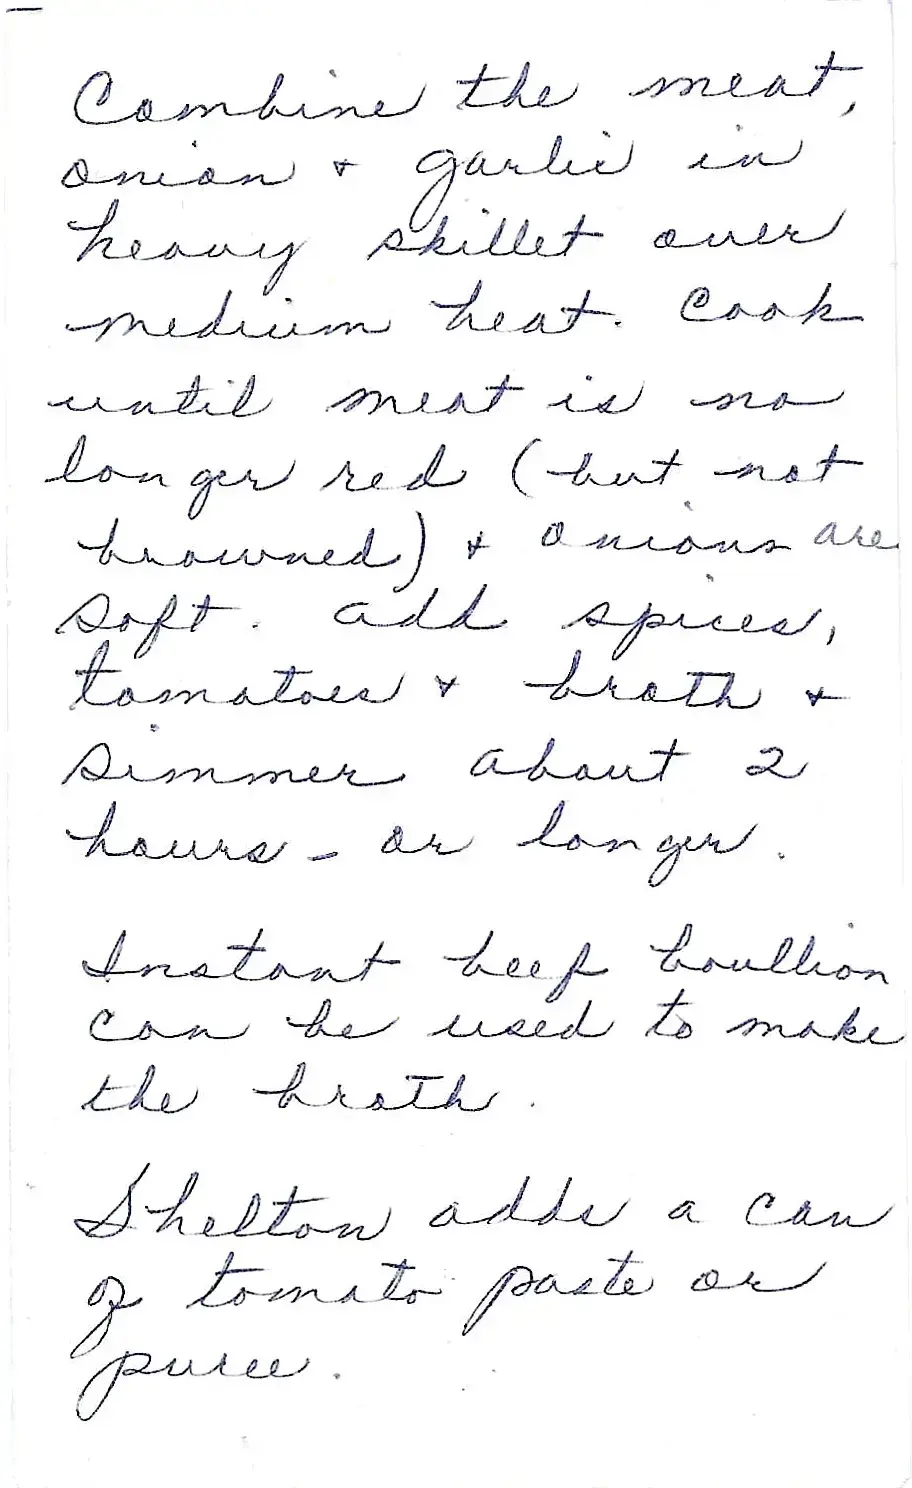 Combine the meat,
onion + garlic in
heavy skillet over
medium heat. Cook
until meat is no
longer red (but not
browned) + onions are
soft. Add spices,
tomatoes + broth +
simmer about 2
hours - or longer.
Instant beef boullion
can be used to make
the broth.
Shelton adds a can
of tomato paste or
puree.